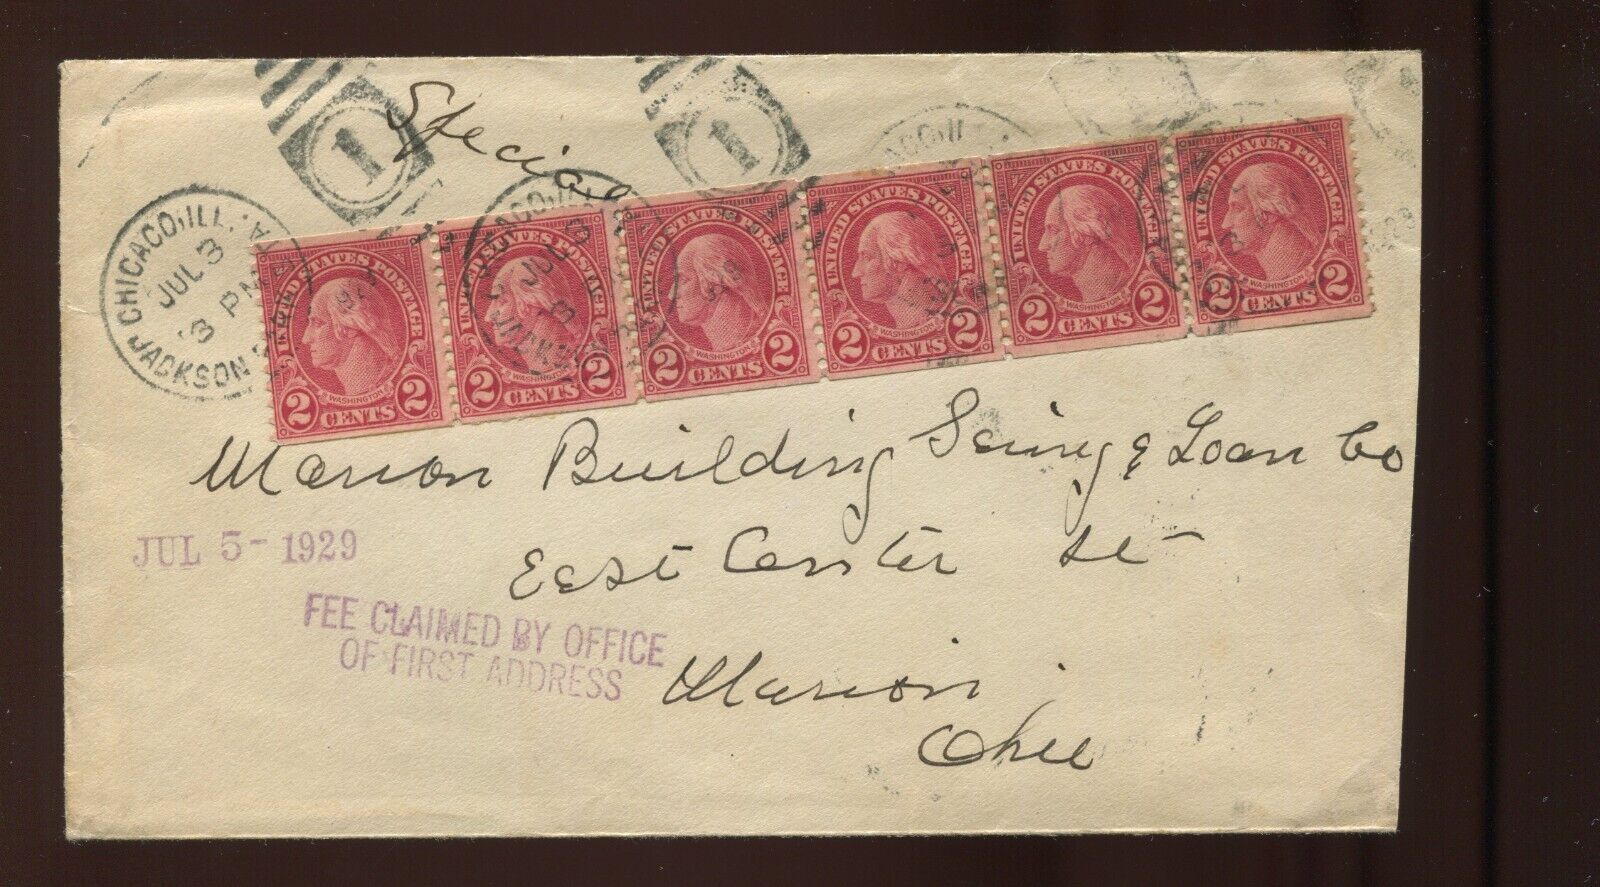 Special
1
1
CHICAGO, ILL.
JUL 3
3 PM
JACKSON
UNITED STATES POSTAGE
WASHINGTON
2 CENTS 2
UNITED STATES POSTAGE
WASHINGTON
2 CENTS 2
UNITED STATES POSTAGE
WASHINGTON
2 CENTS 2
UNITED STATES POSTAGE
WASHINGTON
2 CENTS 2
UNITED STATES POSTAGE
WASHINGTON
2 CENTS 2
UNITED STATES POSTAGE
2 CENTS 2
Marion Building Saving & Loan Co
East Center St
Marion
Ohio
JUL 5- 1929
FEE CLAIMED BY OFFICE
OF FIRST ADDRESS